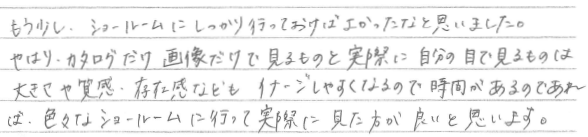 もう少し、ショールームにしっかり行っておけばよかったなと思いました。
やはり、カタログだけ画像だけで見るものと実際に自分の目で見るものは
大きさや質感・存在感なども イメージしやすくなるので時間があるのであれ
ば、色々なショールームに行って実際に見た方が良いと思います。